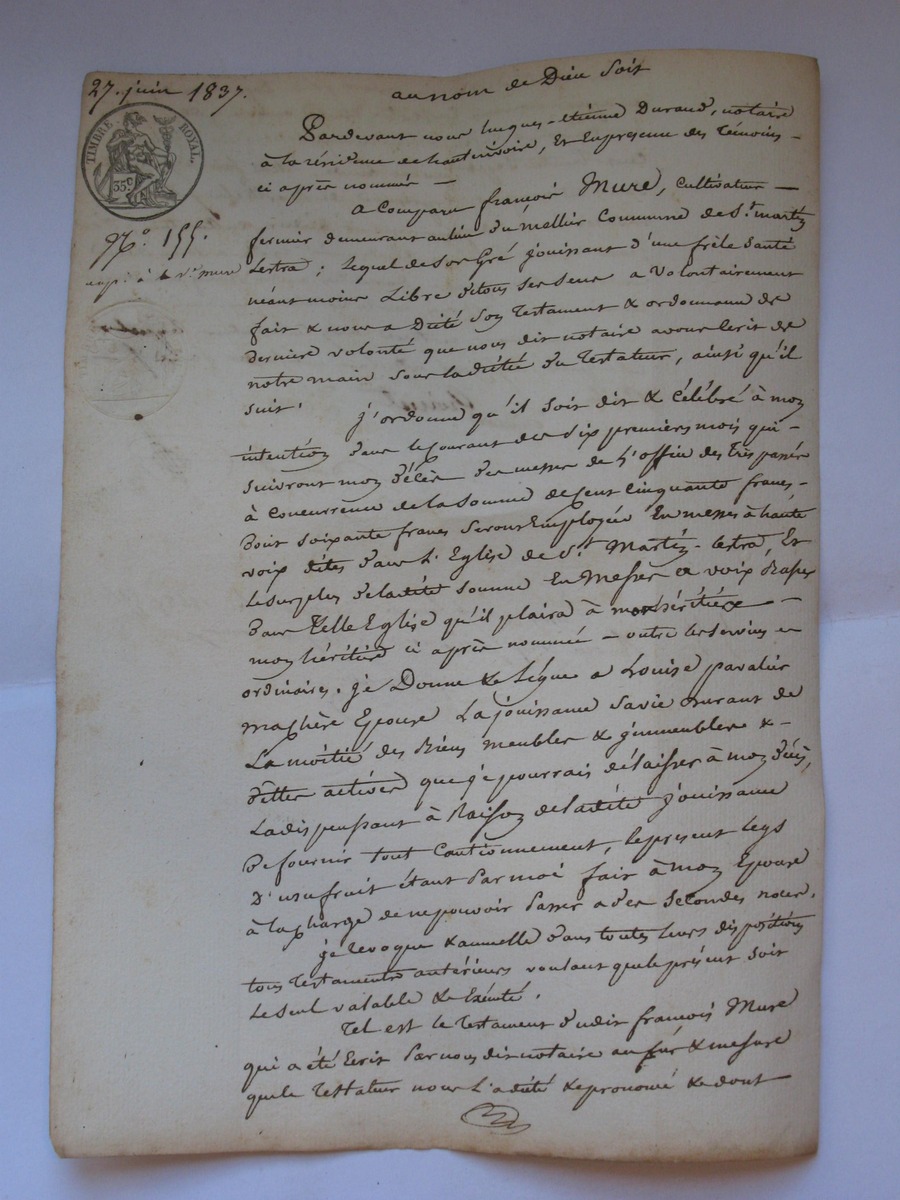 27. juin 1837.
au nom de Dieu soit
TIMBRE ROYAL.
35c.
Pardevant nous hugues-étienne Durand, notaire
à la résidence de hauterivoire, Et En présence des témoins -
ci après nommés -
a Comparu françois Mure, Cultivateur -
fermier demeurant au lieu du mallier Commune de St. martin
N.o 155.
Lestra ; lequel de son Gré jouissant d'une frêle Santé
exp. à la Ve. mure
néant moins Libre de tous ses sens a volontairement
fait & nous a Dicté Son Testament & ordonnance de
Derniere volonté que nous dit notaire avons Ecrit de
notre main sous la dictée du Testateur, ainsi qu'il
suit.
j'ordonne qu'il soit dit & célébré à mon
intention dans le Courant des six premiers mois qui -
suivront mon décès des messes de l'office des trépassés
à Concurrence de la somme de Cent Cinquante francs -
dont soixante francs seront Employés En messes à haute
voix dites dans L'Eglise de St. Martin-Lestra, Et
le surplus de ladite somme En Messes a voix Basse
dans telle Eglise qu'il plaira à
mon héritier ci après nommé - outre les services
ordinaires. je Donne & Légue a Louise pavalier
ma chère Epouse La jouissance sa vie durant de
La moitié des Biens meubles & immeubles & -
dettes actives que je pourrais délaisser à mon décès,
La dispensant à Raison de ladite jouissance
De fournir tout Cautionnement, le present legs
D'usufruit étant Par moi fait à mon Epouse
à la charge de ne pouvoir Passer a des secondes noces.
je revoque & annulle dans toutes leurs dispositions
tous Testaments antérieurs voulant que le présent soit
le seul valable & Exécuté.
Tel est le testament dudit françois Mure
qui a été Ecrit Par nous dit notaire au fur & mesure
que le Testateur nous L'a dicté & prononcé & dont -